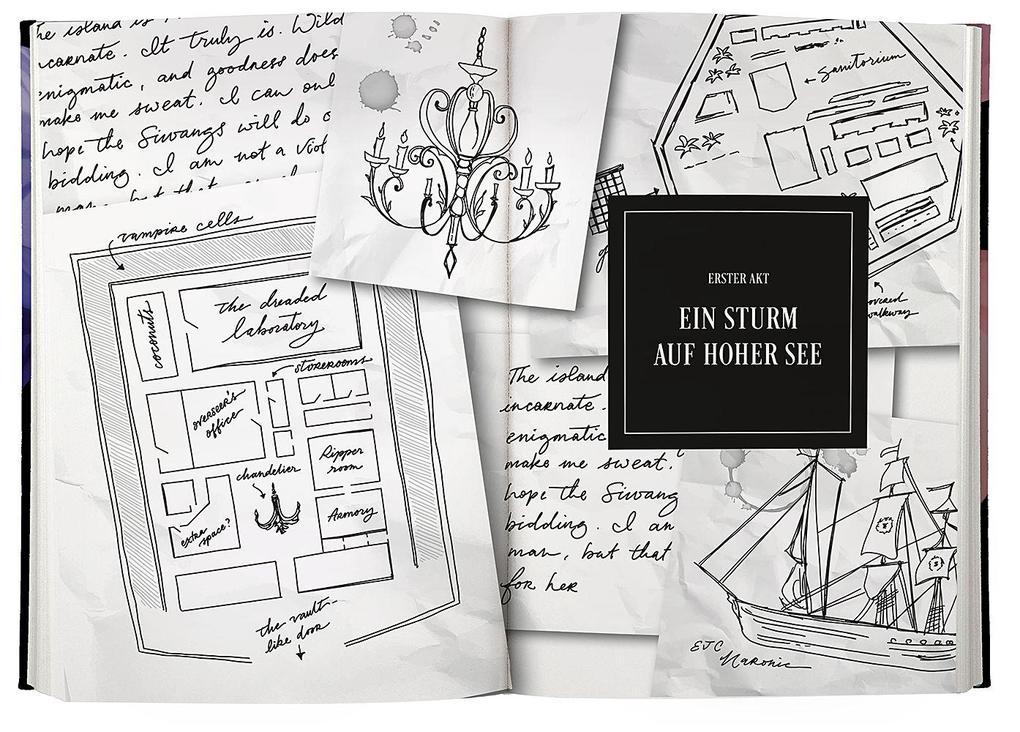 the island is
incarnate. It truly is. Wild
enigmatic, and goodness does
make me sweat. I can onl
hope the Siwangs will do
bidding. I am not a viol
man, but that
vampire cells
coconuts
the dreaded
laboratory
storerooms
overseer's
office
chandelier
Ripper
room
Armory
extra
space?
the vault-
like door
Sanitorium
covered
walkway
ERSTER AKT
EIN STURM
AUF HOHER SEE
The island
incarnate.
enigmatic
make me sweat.
hope the Siwang
bidding. I am
man, but that
for her
EJC
Naronic